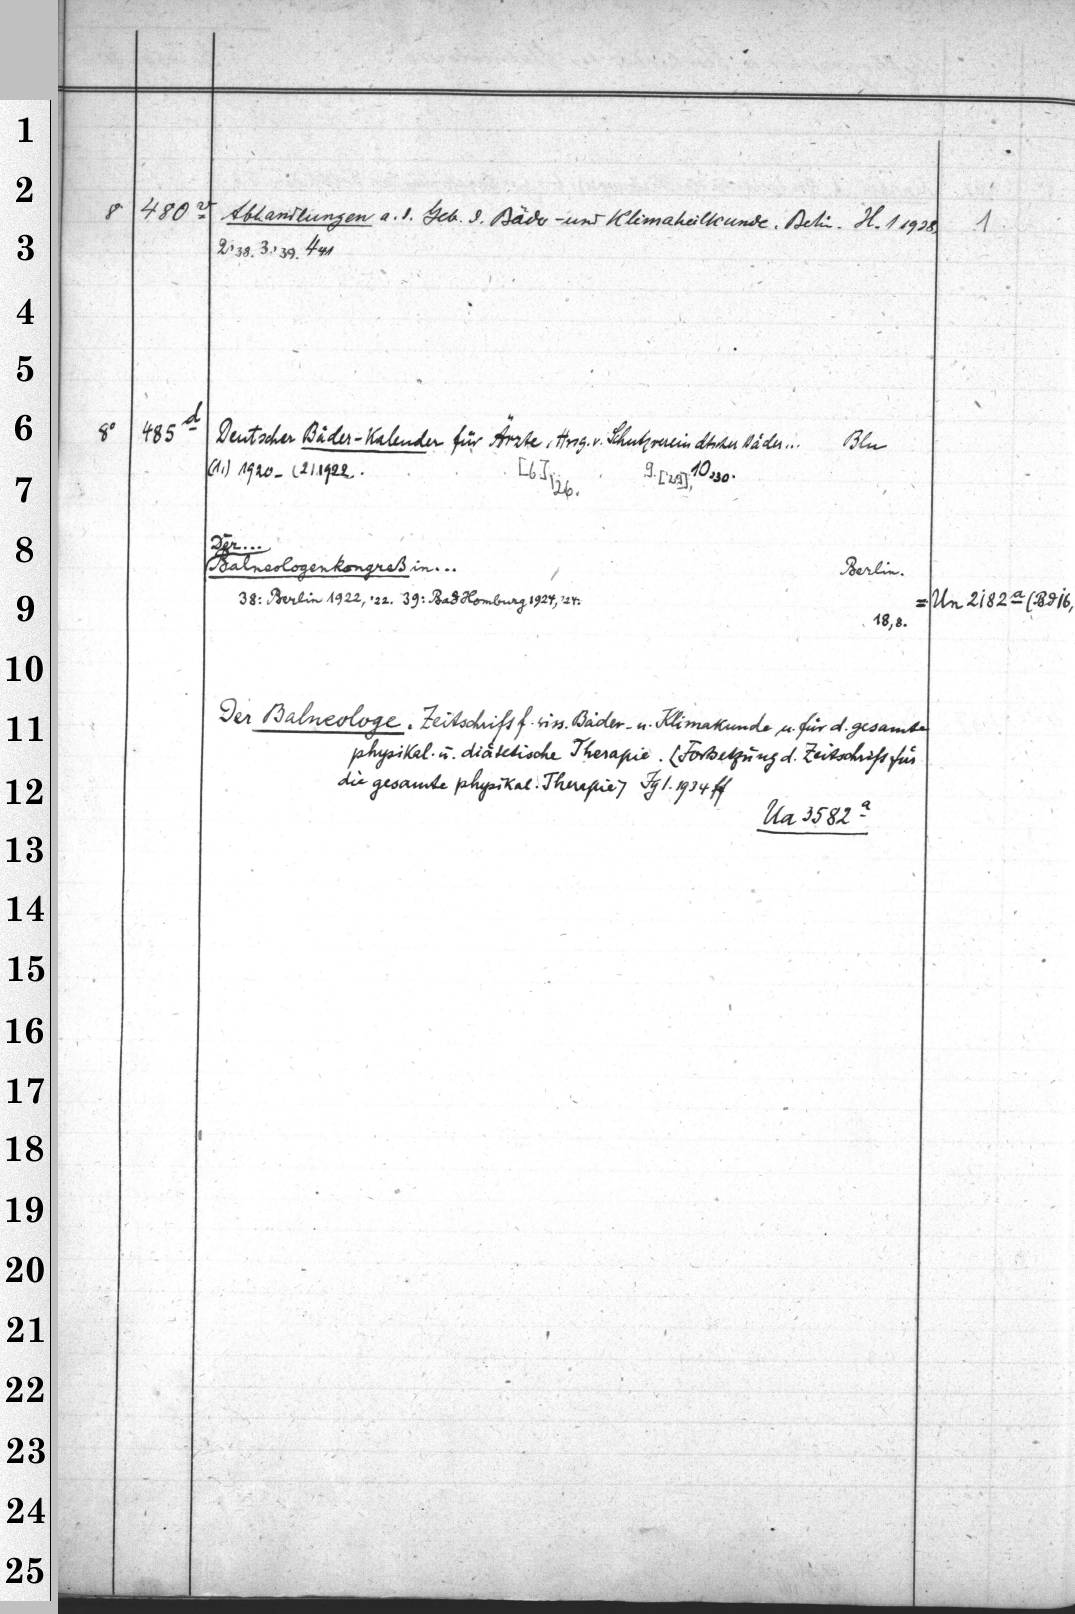 1
2
8 480 v Abhandlungen a. d. Geb. d. Bäder- und Klimaheilkunde. Berlin. H. 1 1938, 1
3
2,'38. 3,'39. 4 '41
4
5
6
8° 485 d Deutscher Bäder-Kalender für Ärzte, Hrsg. v. Schutzverein dtscher Bäder... Bln
(1.) 1920 - (2) 1922. [6] '26. 9. ['29], 10,'30.
7
8
Der...
Balneologenkongreß in... Berlin.
9
38: Berlin 1922, '22. 39: Bad Homburg 1924, '24. = Un 2182 a (Bd 16,
18, 8.
10
11
Der Balneologe. Zeitschrift f. wiss. Bäder- u. Klimakunde u. für d. gesamte
physikal. u. diätetische Therapie. (Fortsetzung d. Zeitschrift für
12
die gesamte physikal. Therapie) Jg 1. 1934 ff
Ua 3582 a
13
14
15
16
17
18
19
20
21
22
23
24
25